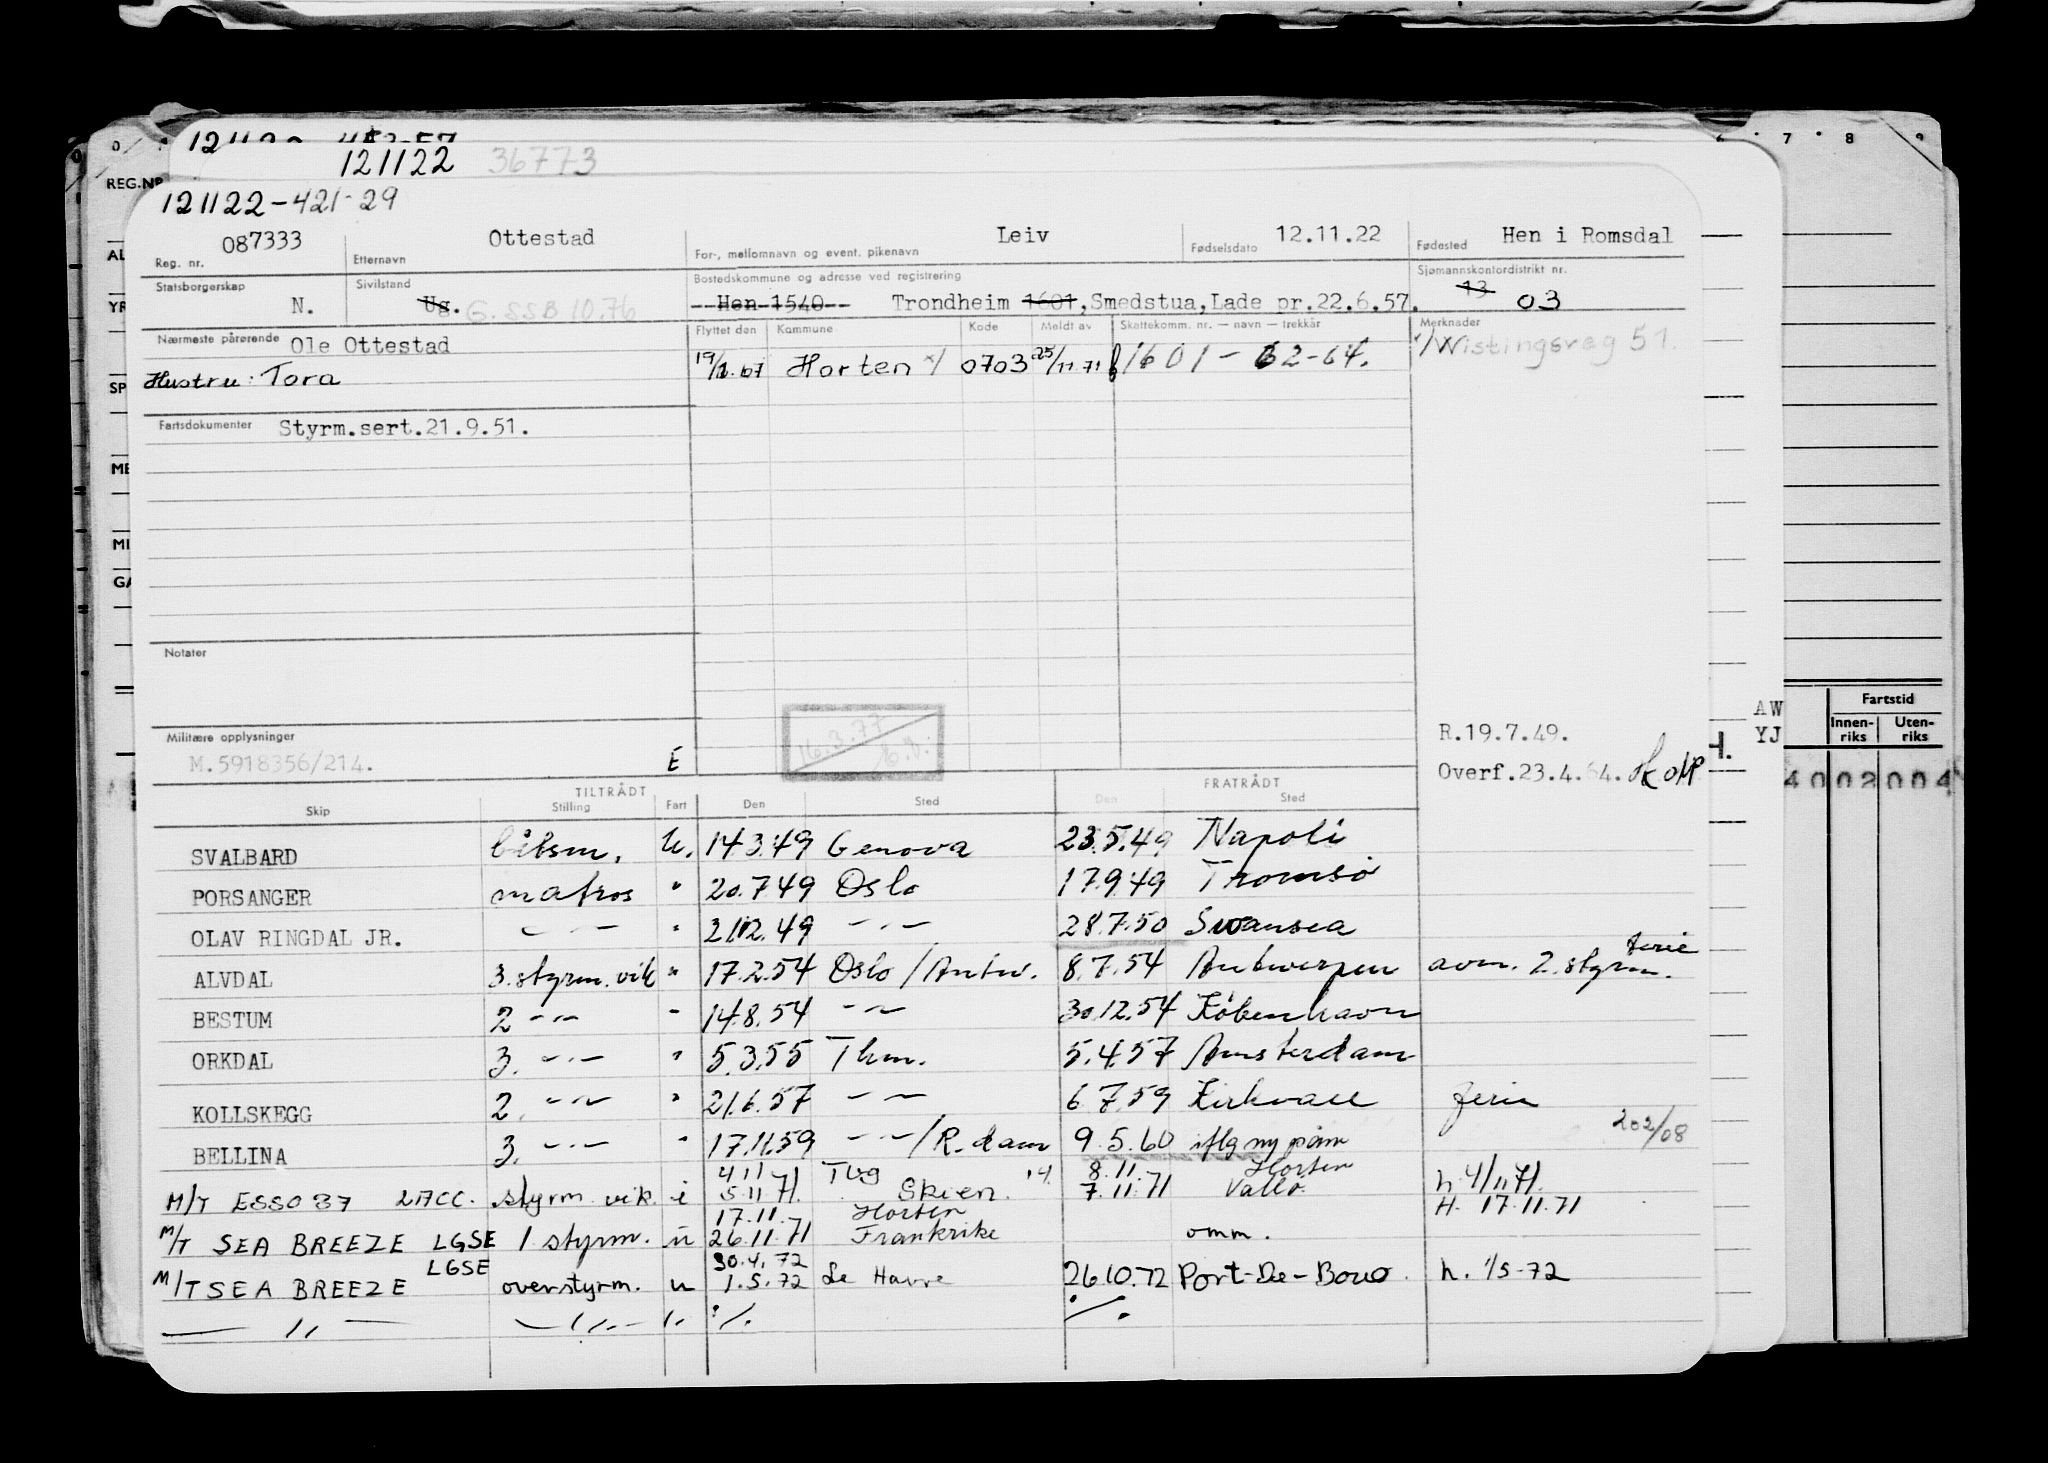 121122 36773
121122-421-29
087333 Ottestad Leiv 12.11.22 Hen i Romsdal
Reg. nr. Etternavn For-, mellomnavn og event. pikenavn Fødselsdato Fødested
Statsborgerskap Sivilstand Bostedskommune og adresse ved registrering Sjømannskontordistrikt nr.
N. Ug. G. SSB 10.76 Hen 1540 Trondheim 1601, Smedstua, Lade pr.22.6.57. 13 03
Nærmeste pårørende Ole Ottestad Flyttet den Kommune Kode Meldt av Skattekomm. nr. — navn — trekkår Merknader
Hustru: Tora Horten x/ 0703 25/11.71 1601 - 62-64. x/Wistingsveg 51.
Fartsdokumenter Styrm.sert.21.9.51.
Notater
Militære opplysninger R.19.7.49.
M.5918356/214. E 16.3.77 Overf.23.4.64.
TILTRÅDT FRATRÅDT
Skip Stilling Fart Den Sted Den Sted
SVALBARD båtsm. U. 14.3.49 Genova 23.5.49 Napoli
PORSANGER matros " 20.7.49 Oslo 17.9.49 Tromsø
OLAV RINGDAL JR. —"— " —"— 28.7.50 Swansea
ALVDAL 3. styrm. vik " 17.2.54 Oslo/Antw. 8.7.54 Antwerpen avm. 2. styrm. ferie
BESTUM 2 —"— " 14.8.54 —"— 30.12.54 København
ORKDAL 3. —"— " 5.3.55 Thm. 5.4.57 Amsterdam
KOLLSKEGG 2. —"— " 21.6.57 —"— 6.7.59 Kirkwall ferie
BELLINA 3. —"— " 17.11.59 —"—/R.dam 9.5.60 iflg ny påm 202/08
4.11 Tbg 8.11. Horten
M/T ESSO 37 styrm. vik. i 5.11.71. Skien. 7.11.71 Vallø. h. 4/11 71.
17.11. Horten H. 17.11.71
M/T SEA BREEZE LGSE 1 styrm. u 26.11.71 Frankrike omm.
LGSE 30.4.72
M/T SEA BREEZE overstyrm. u 1.5.72 Le Havre 26.10.72 Port-De-Bouc. h. 1/5-72
—"— —"— " ./. ./.
REG.NR
7 8 9
Fartstid
Innen-riks Uten-riks
AW
YJ
4 0 0 2 0 0 4